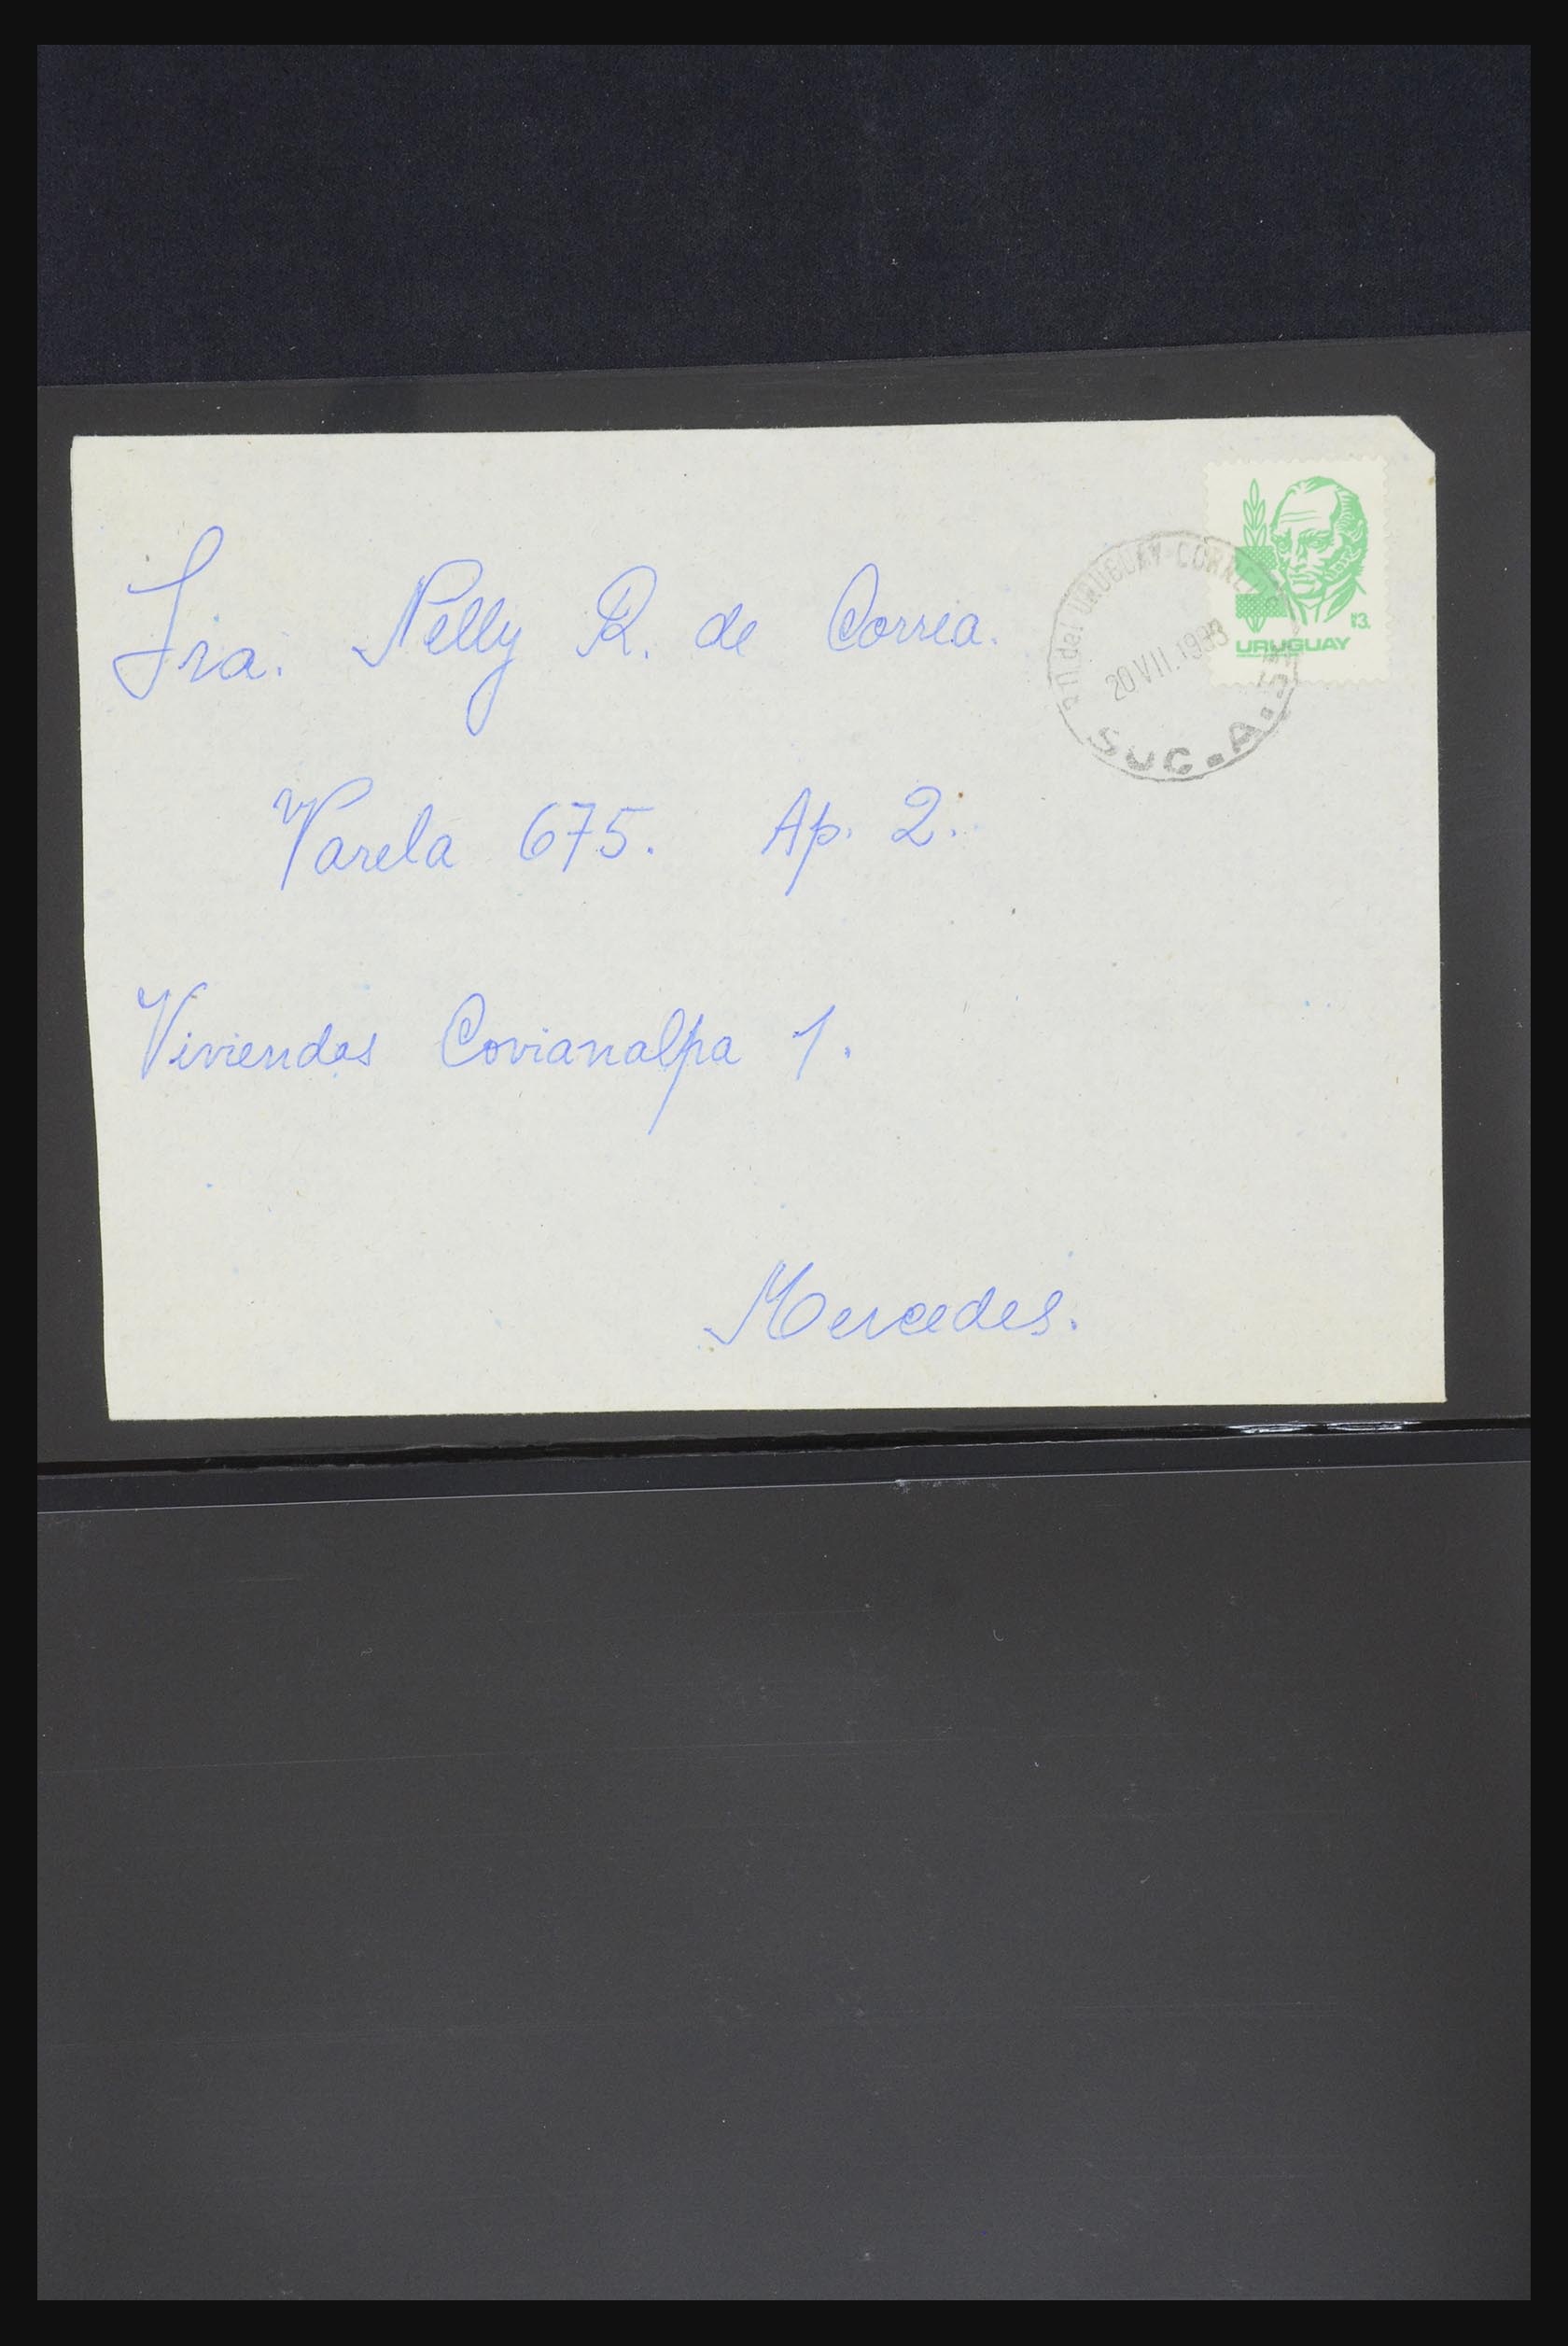 Sra. Nelly R. de Correa.
Varela 675. Ap. 2.
Viviendas Covianalpa 1.
Mercedes.
R.O. del URUGUAY-CORREOS
20 VII. 1993
SUC. A.
N$ 3.
URUGUAY